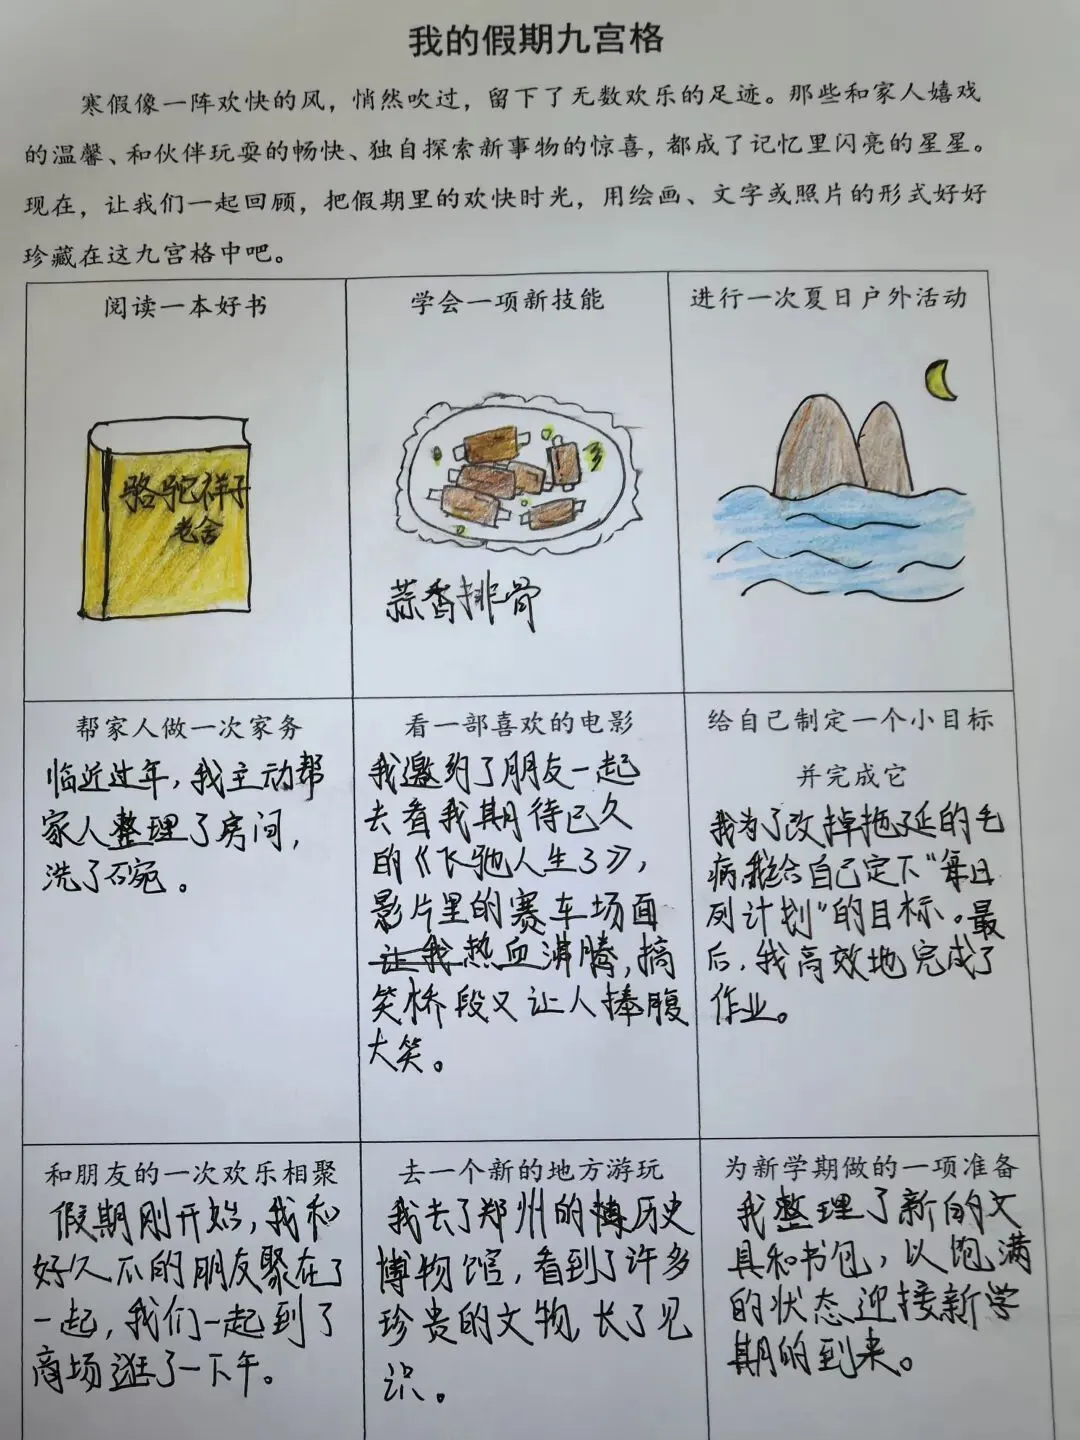 我的假期九宫格
寒假像一阵欢快的风，悄然吹过，留下了无数欢乐的足迹。那些和家人嬉戏
的温馨、和伙伴玩耍的畅快、独自探索新事物的惊喜，都成了记忆里闪亮的星星。
现在，让我们一起回顾，把假期里的欢快时光，用绘画、文字或照片的形式好好
珍藏在这九宫格中吧。
阅读一本好书
骆驼祥子
老舍
学会一项新技能
蒜香排骨
进行一次夏日户外活动
帮家人做一次家务
临近过年，我主动帮
家人整理了房间，
洗了碗。
看一部喜欢的电影
我邀约了朋友一起
去看我期待已久
的《飞驰人生3》，
影片里的赛车场面
让我热血沸腾，搞
笑桥段又让人捧腹
大笑。
给自己制定一个小目标
并完成它
我为了改掉拖延的毛
病，我给自己定下“每日
列计划”的目标。最
后，我高效地完成了
作业。
和朋友的一次欢乐相聚
假期刚开始，我和
好久不的朋友聚在了
一起，我们一起到了
商场逛了一下午。
去一个新的地方游玩
我去了郑州的历史
博物馆，看到了许多
珍贵的文物，长了见
识。
为新学期做的一项准备
我整理了新的文
具和书包，以饱满
的状态迎接新学
期的到来。